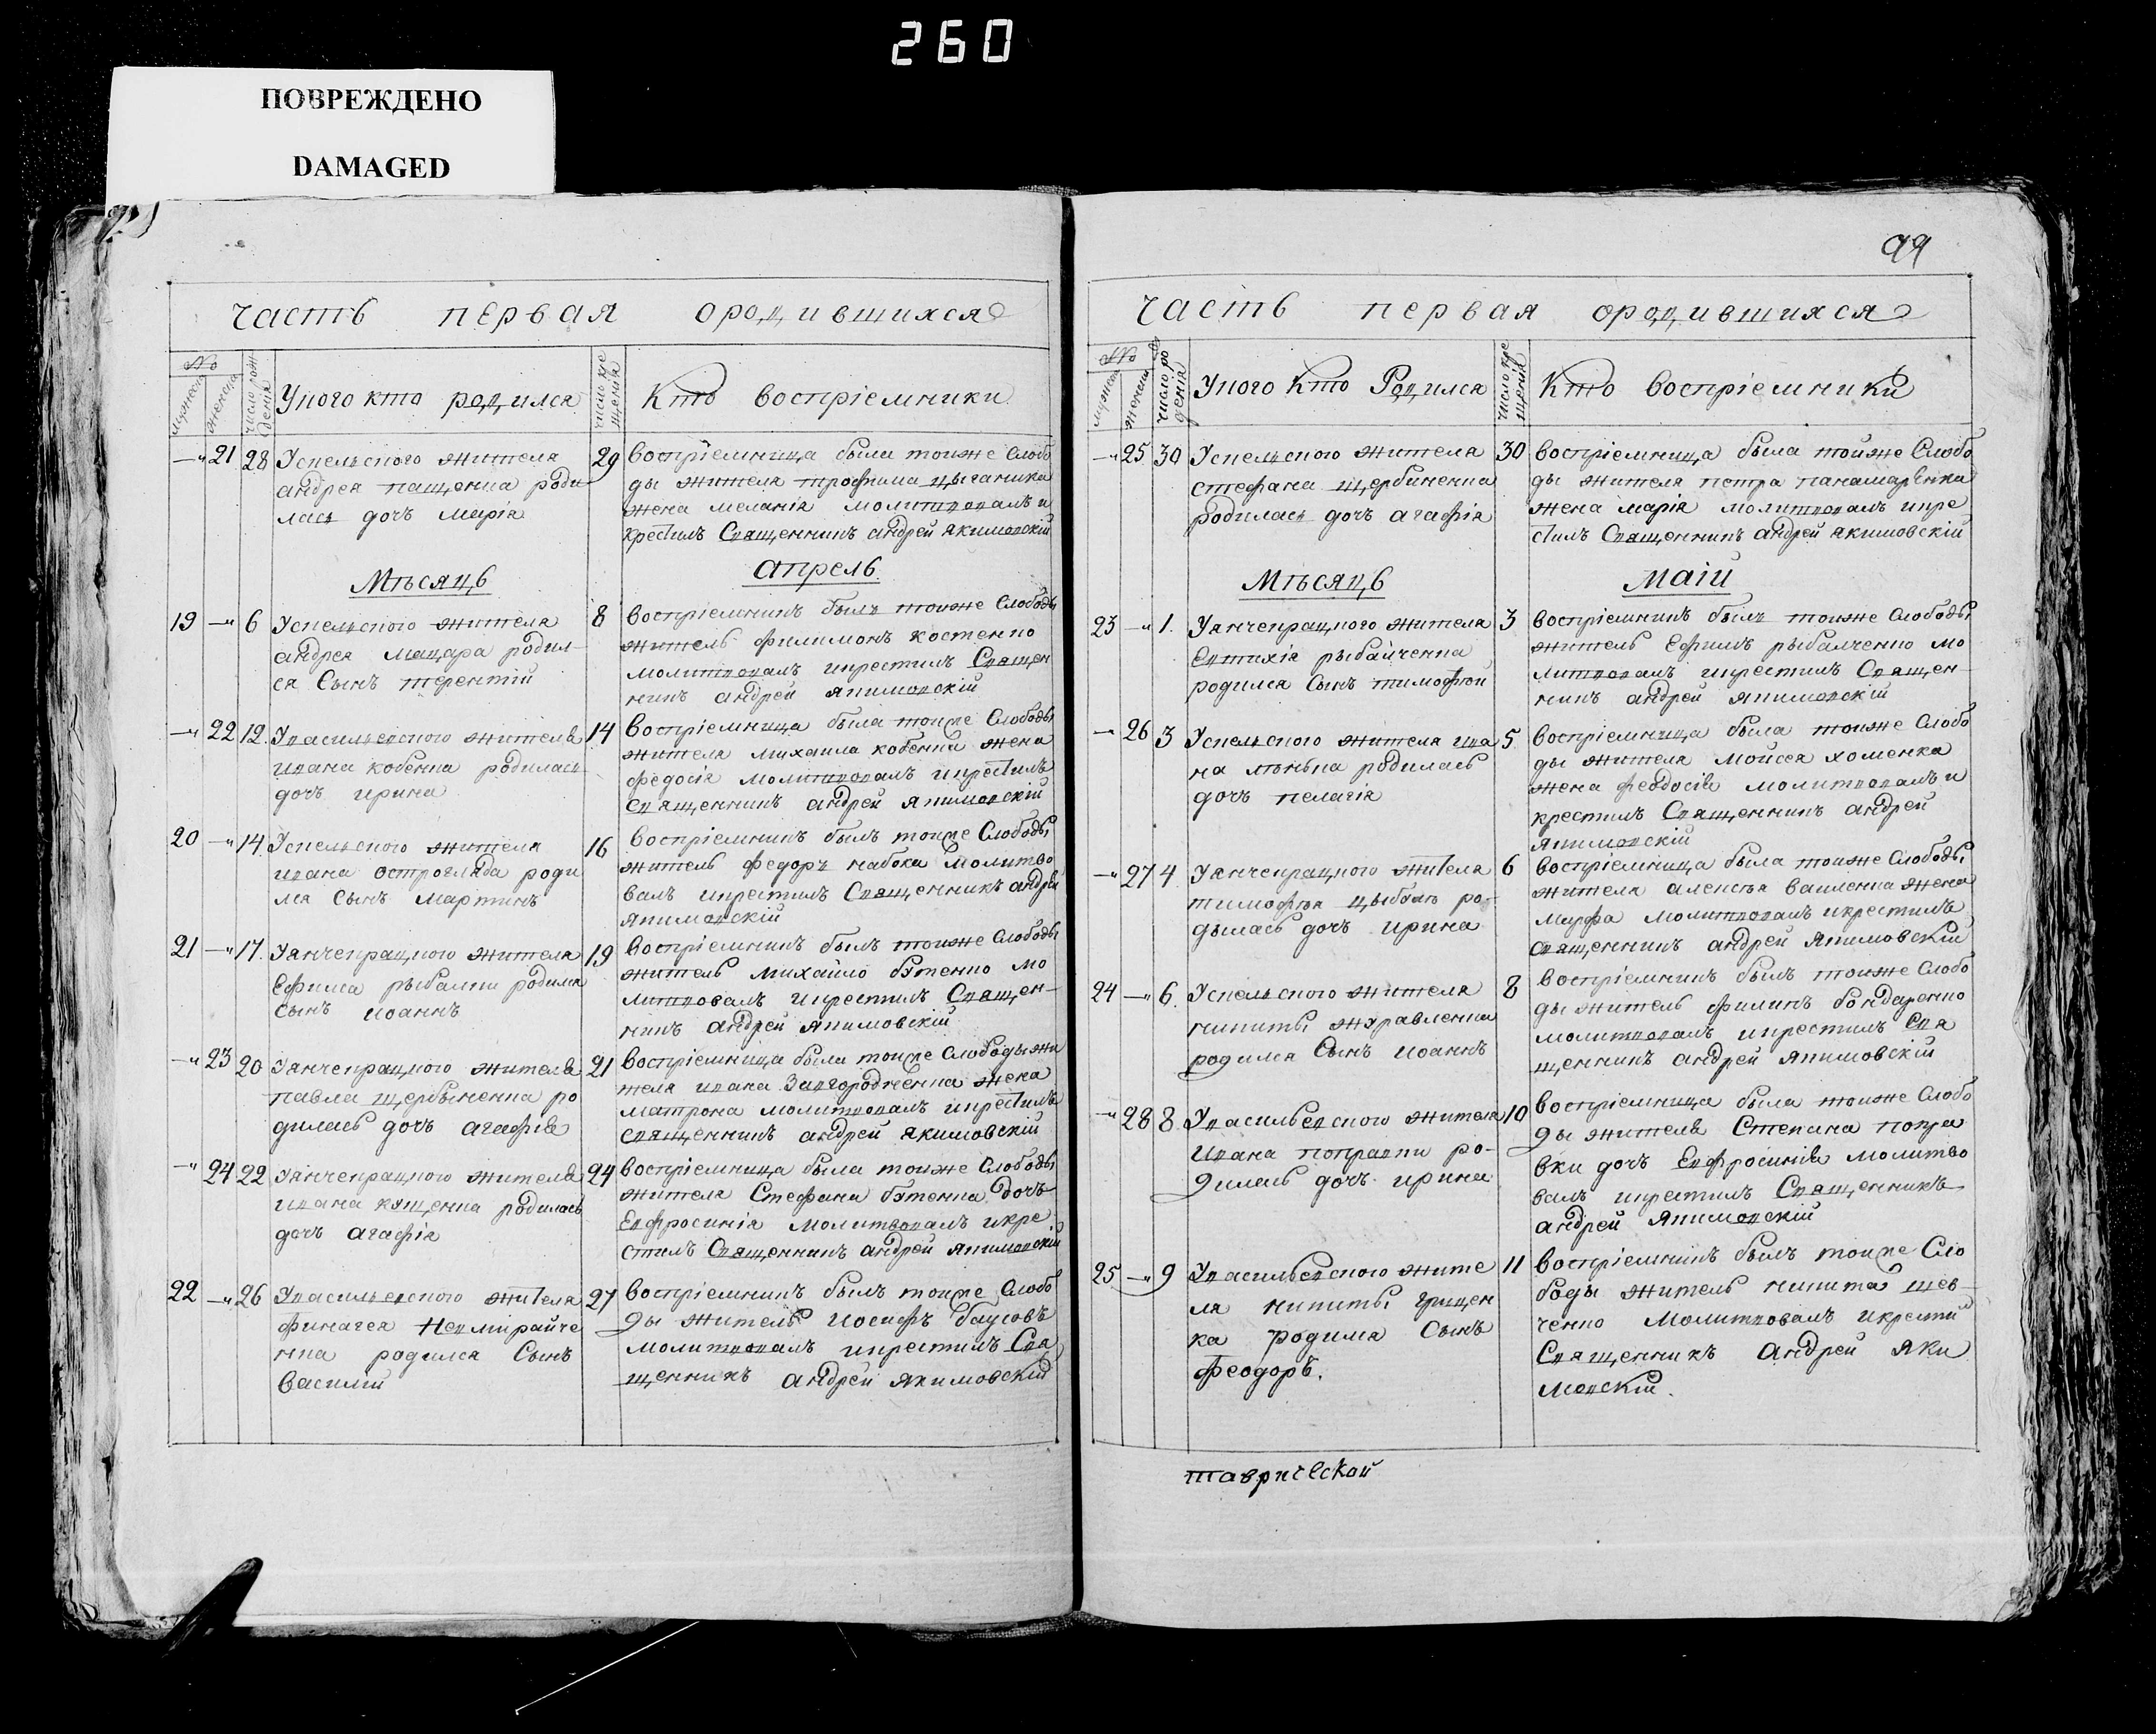 260
ПОВРЕЖДЕНО
DAMAGED
часть первая ородившихся
№
мужеска
женска
число рож
денія
Укого кто родился
число кре
щенія
Кто воспріемники
— 21 28 Успельского жителя
андрея пащенка роди
лась дочъ марія
29 воспріемница были тоиже Слобо
ды жителя трофима цыганика
жена меланія молитвовалъ и
крестилъ Священникъ андрей якимовскій
Мѣсяцъ апрель
19 — 6 Успельского жителя
андрея мацара родил-
ся Сынъ терентій
8 воспріемникъ былъ тоиже Слободы
житель филимонъ костенко
молитвовалъ икрестилъ Священ
никъ андрей якимовскій
— 22 12. Увасильевского жителя
ивана кобенка родилась
дочъ ирина
14 воспріемница была тоиже Слободы
жителя михаила кобенка жена
федосія молитвовалъ икрестилъ
священникъ андрей якимовскій
20 — 14. Успельского жителя
ивана остроглада роди
лся сынъ мартинъ
16 воспріемникъ былъ тоиже Слободы
житель федоръ набока молитво
валъ икрестилъ Священникъ андрей
якимовскій
21 — 17. Уянчекрацкого жителя
Ефима рыбалки родился
сынъ иоаннъ
19 воспріемникъ былъ тоиже Слободы
житель михайло бутенко мо
литвовалъ икрестилъ Священ-
никъ андрей якимовскій
— 23 20 Уянчекрацкого жителя
павла щербыненка ро
дилась дочъ агафія
21 воспріемница были тоиже Слободы жи
теля ивана Завгородненка жена
матрона молитвовалъ икрестилъ
священникъ андрей якимовскій
— 24 22 Уянчекрацкого жителя
ивана кущенка родилась
дочъ агафія
24 воспріемница была тоиже Слободы
жителя Стефана бутенка дочъ
Евфросинія молитвовалъ икре
стилъ Священникъ андрей якимовскій
22 — 26 Увасильевского жителя
финагея Невмирайче
нка родился Сынъ
василій
27 воспріемникъ былъ тоиже Слобо
ды житель иосифъ баусовъ
молитвовалъ икрестилъ Свя
щенникъ андрей якимовскій
99
часть первая ородившихся
№
мужеска
женска
число ро
денія
Укого Кто Родился
число кре
щенія
Кто воспріемники
— 25 30 Успельского жителя
стефана щербиненка
родилась дочъ агафія
30 воспріемница была тойже Слобо
ды жителя петра панамаренка
жена марія молитвовалъ икре
стилъ Священникъ андрей якимовскій
Мѣсяцъ маій
23 — 1. Уянчекрацкого жителя
Евтихія рыбайченка
родился Сынъ тимофѣй
3 воспріемникъ былъ тоиже Слободы
житель Ефимъ рыбалченко мо
литвовалъ икрестилъ Священ-
никъ андрей якимовскій
— 26 3 Успельского жителя ива
на лѣнька родилась
дочъ пелагія
5 воспріемница была тоиже Слобо
ды жителя мойсея хоменка
жена феодосія молитвовалъ и
крестилъ Священникъ андрей
якимовскій
— 27 4 Уянчекрацкого жителя
тимофѣя цыбулѣ ро-
дылась дочъ ирина
6 воспріемница была тоиже Слободы
жителя алексѣя вакленка жена
марфа молитвовалъ икрестилъ
священникъ андрей якимовскій
24 — 6. Успельского жителя
никиты журавленка
родился Сынъ иоаннъ
8 воспріемникъ былъ тоиже Слобо
ды житель филипъ бондаренко
молитвовалъ икрестилъ Свя
щенникъ андрей якимовскій
— 28 8. Увасильевского жителя
Ивана поправки ро-
дилась дочъ ирина
10 воспріемница была тоиже Слобо
ды жителя Степана попра
вки дочъ Евфросинія молитво
валъ икрестилъ Священникъ
андрей якимовскій
25 — 9 Увасильевского жите
ля никиты грицен
ка родился Сынъ
феодоръ.
11 воспріемникъ былъ тоиже Сло
боды житель никита шев-
ченко молитвовалъ икрестил
Священникъ андрей яки
мовскій.
таврической